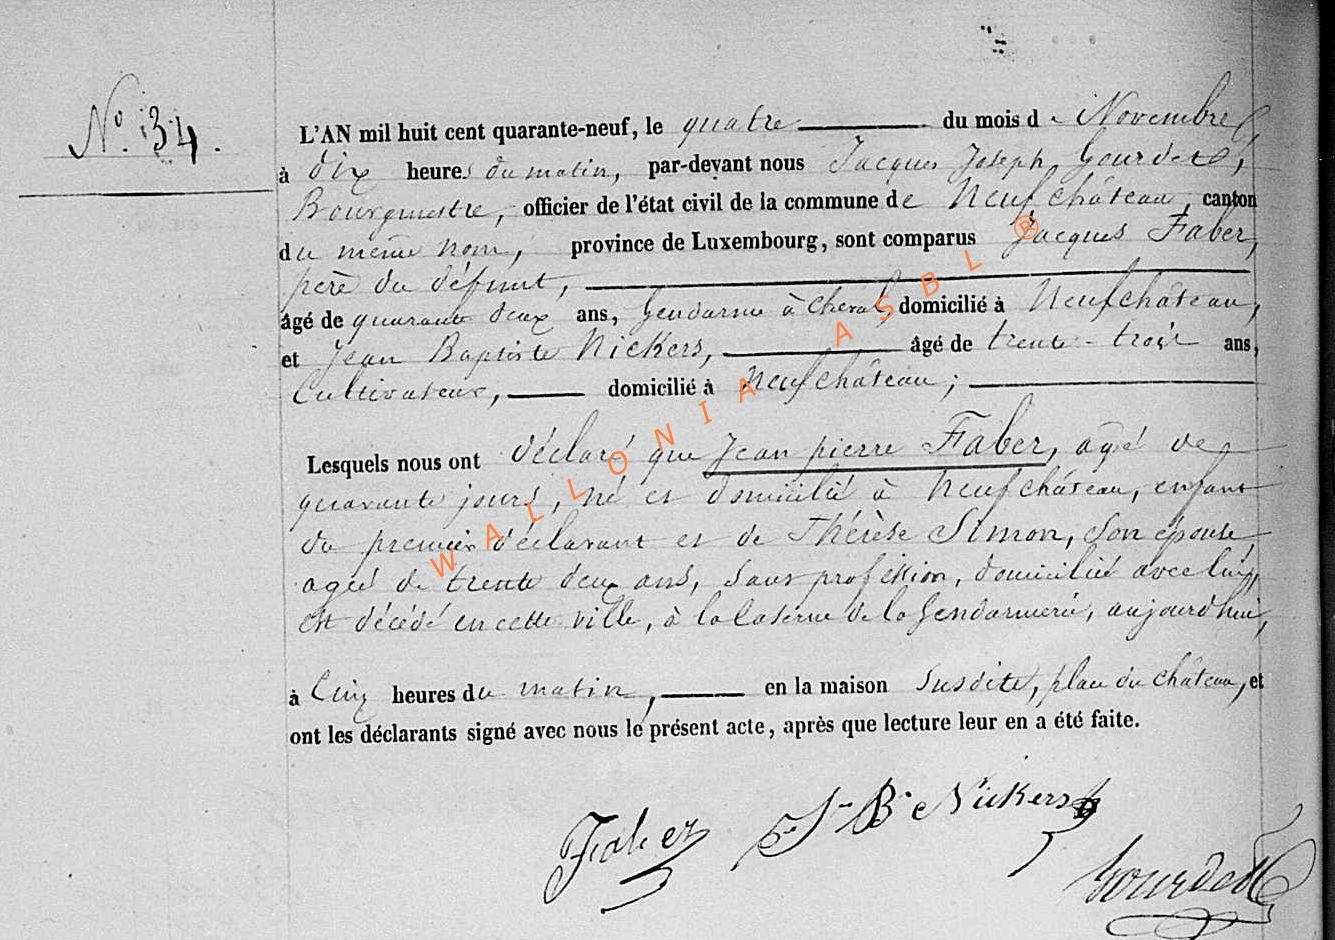 N.° 34.
L'AN mil huit cent quarante-neuf, le quatre du mois de Novembre,
à dix heures du matin, par-devant nous Jacques Joseph Gourdet,
Bourgmestre, officier de l'état civil de la commune de Neufchâteau, canton
du même nom, province de Luxembourg, sont comparus Jacques Faber,
père du défunt,
âgé de quarante deux ans, Gendarme à cheval, domicilié à Neufchâteau,
et Jean Baptiste Nickers, âgé de trente-trois ans,
Cultivateur, domicilié à Neufchâteau;
Lesquels nous ont déclaré que Jean pierre Faber, agé de
quarante jours, né et domicilié à Neufchâteau, enfant
du premier déclarant et de Thérèse Simon, son épouse
agée de trente deux ans, sans profession, domicilié avec lui,
est décédé en cette ville, à la Caserne de la Gendarmerie, aujourd'hui,
à Cinq heures du matin, en la maison susdite, place du château, et
ont les déclarants signé avec nous le présent acte, après que lecture leur en a été faite.
Faber J.n B.te Nickers
Gourdet
WALLONIA ASBL ®